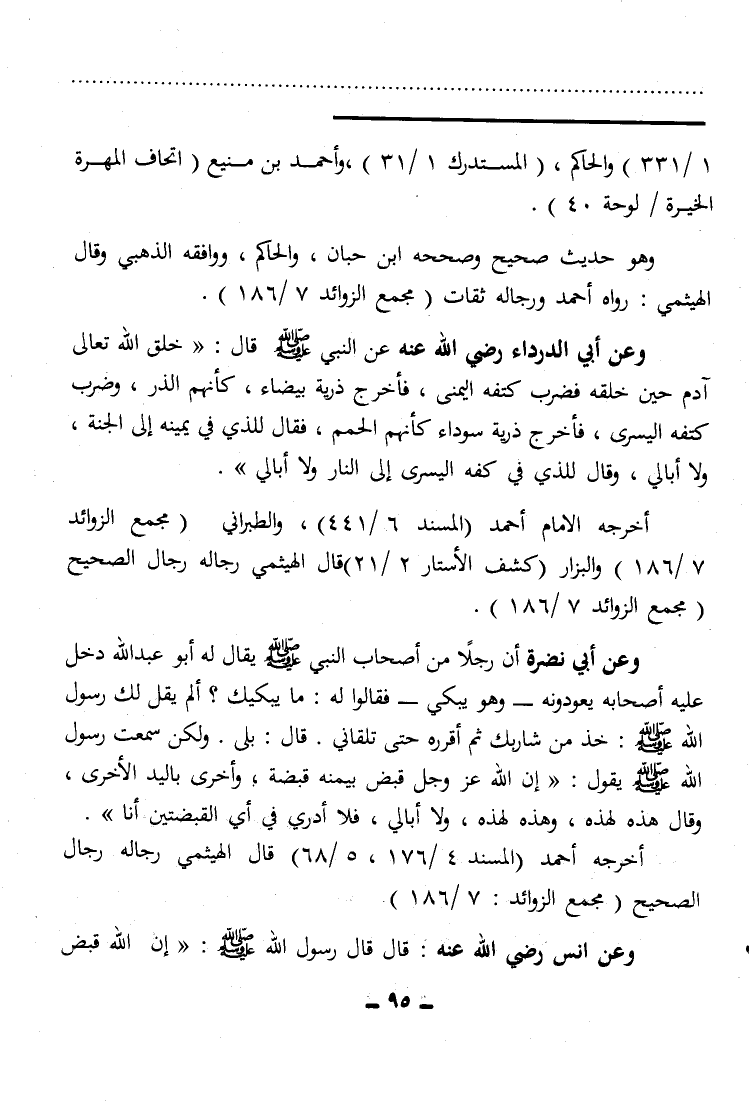 ١ / ٣٣١ ) والحاكم ، ( المستدرك ١ / ٣١ ) ،وأحمد بن منيع ( اتحاف المهرة
الخيرة / لوحة ٤٠ ) .
وهو حديث صحيح وصححه ابن حبان ، والحاكم ، ووافقه الذهبي وقال
الهيثمي : رواه أحمد ورجاله ثقات ( مجمع الزوائد ٧ / ١٨٦ ) .
وعن أبي الدرداء رضي الله عنه عن النبي ﷺ قال : « خلق الله تعالى
آدم حين خلقه فضرب كتفه اليمنى ، فأخرج ذرية بيضاء ، كأنهم الذر ، وضرب
كتفه اليسرى ، فأخرج ذرية سوداء كأنهم الحمم ، فقال للذي في يمينه إلى الجنة ،
ولا أبالي ، وقال للذي في كفه اليسرى إلى النار ولا أبالي » .
أخرجه الامام أحمد (المسند ٦ / ٤٤١) ، والطبراني ( مجمع الزوائد
٧ / ١٨٦ ) والبزار (كشف الأستار ٢ / ٢١)قال الهيثمي رجاله رجال الصحيح
( مجمع الزوائد ٧ / ١٨٦ ) .
وعن أبي نضرة أن رجلًا من أصحاب النبي ﷺ يقال له أبو عبدالله دخل
عليه أصحابه يعودونه ــ وهو يبكي ــ فقالوا له : ما يبكيك ؟ ألم يقل لك رسول
الله ﷺ : خذ من شاربك ثم أقرره حتى تلقاني . قال : بلى . ولكن سمعت رسول
الله ﷺ يقول : « إن الله عز وجل قبض بيمنه قبضة ، وأخرى باليد الأخرى ،
وقال هذه لهذه ، وهذه لهذه ، ولا أبالي ، فلا أدري في أي القبضتين أنا » .
أخرجه أحمد (المسند ٤ / ١٧٦ ، ٥ / ٦٨) قال الهيثمي رجاله رجال
الصحيح ( مجمع الزوائد : ٧ / ١٨٦ )
وعن انس رضي الله عنه : قال قال رسول الله ﷺ : « إن الله قبض
ــ ٩٥ ــ